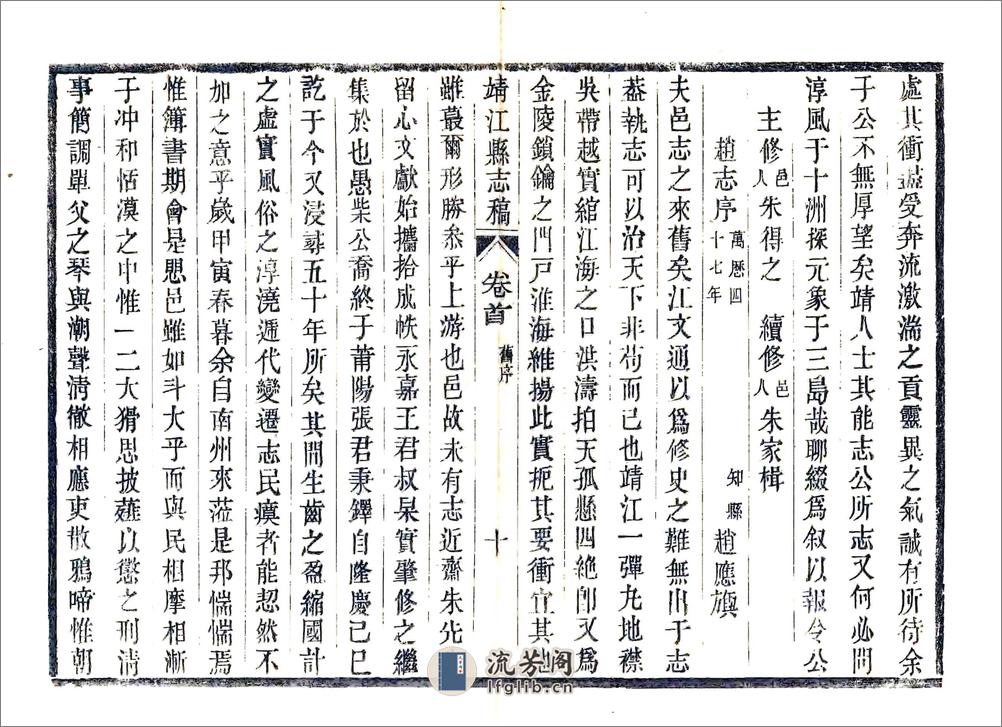 處其衝盪受奔流激湍之貢靈異之氣誠有所待余
于公不無厚望矣靖人士其能志公所志又何必問
淳風于十洲探元象于三島哉聊綴爲叙以報令公
主修邑人朱得之　續修邑人朱家楫
趙志序　萬曆四十七年　知縣　趙應旟
夫邑志之來舊矣江文通以爲修史之難無出于志
葢執志可以治天下非苟而已也靖江一彈丸地襟
吳帶越實綰江海之口洪濤拍天孤懸四絶卽又爲
金陵鎖鑰之門戸淮海維揚此實扼其要衝宜其
靖江縣志稿　卷首　舊序　十
雖蕞爾形勝叅乎上游也邑故未有志近齋朱先
留心文獻始攟拾成帙永嘉王君叔杲實肇修之繼
集於也愚柴公喬終于莆陽張君秉鐸自隆慶己巳
訖于今又浸尋五十年所矣其間生齒之盈縮國計
之虛實風俗之淳澆遞代變遷志民瘼者能恝然不
加之意乎歲甲寅春暮余自南州來蒞是邦惴惴焉
惟簿書期會是思邑雖如斗大乎而與民相摩相漸
于冲和恬漠之中惟一二大猾思披薤以懲之刑淸
事簡調單父之琴與潮聲淸徹相應吏散鴉啼惟朝
流芳阁
lfglib.cn